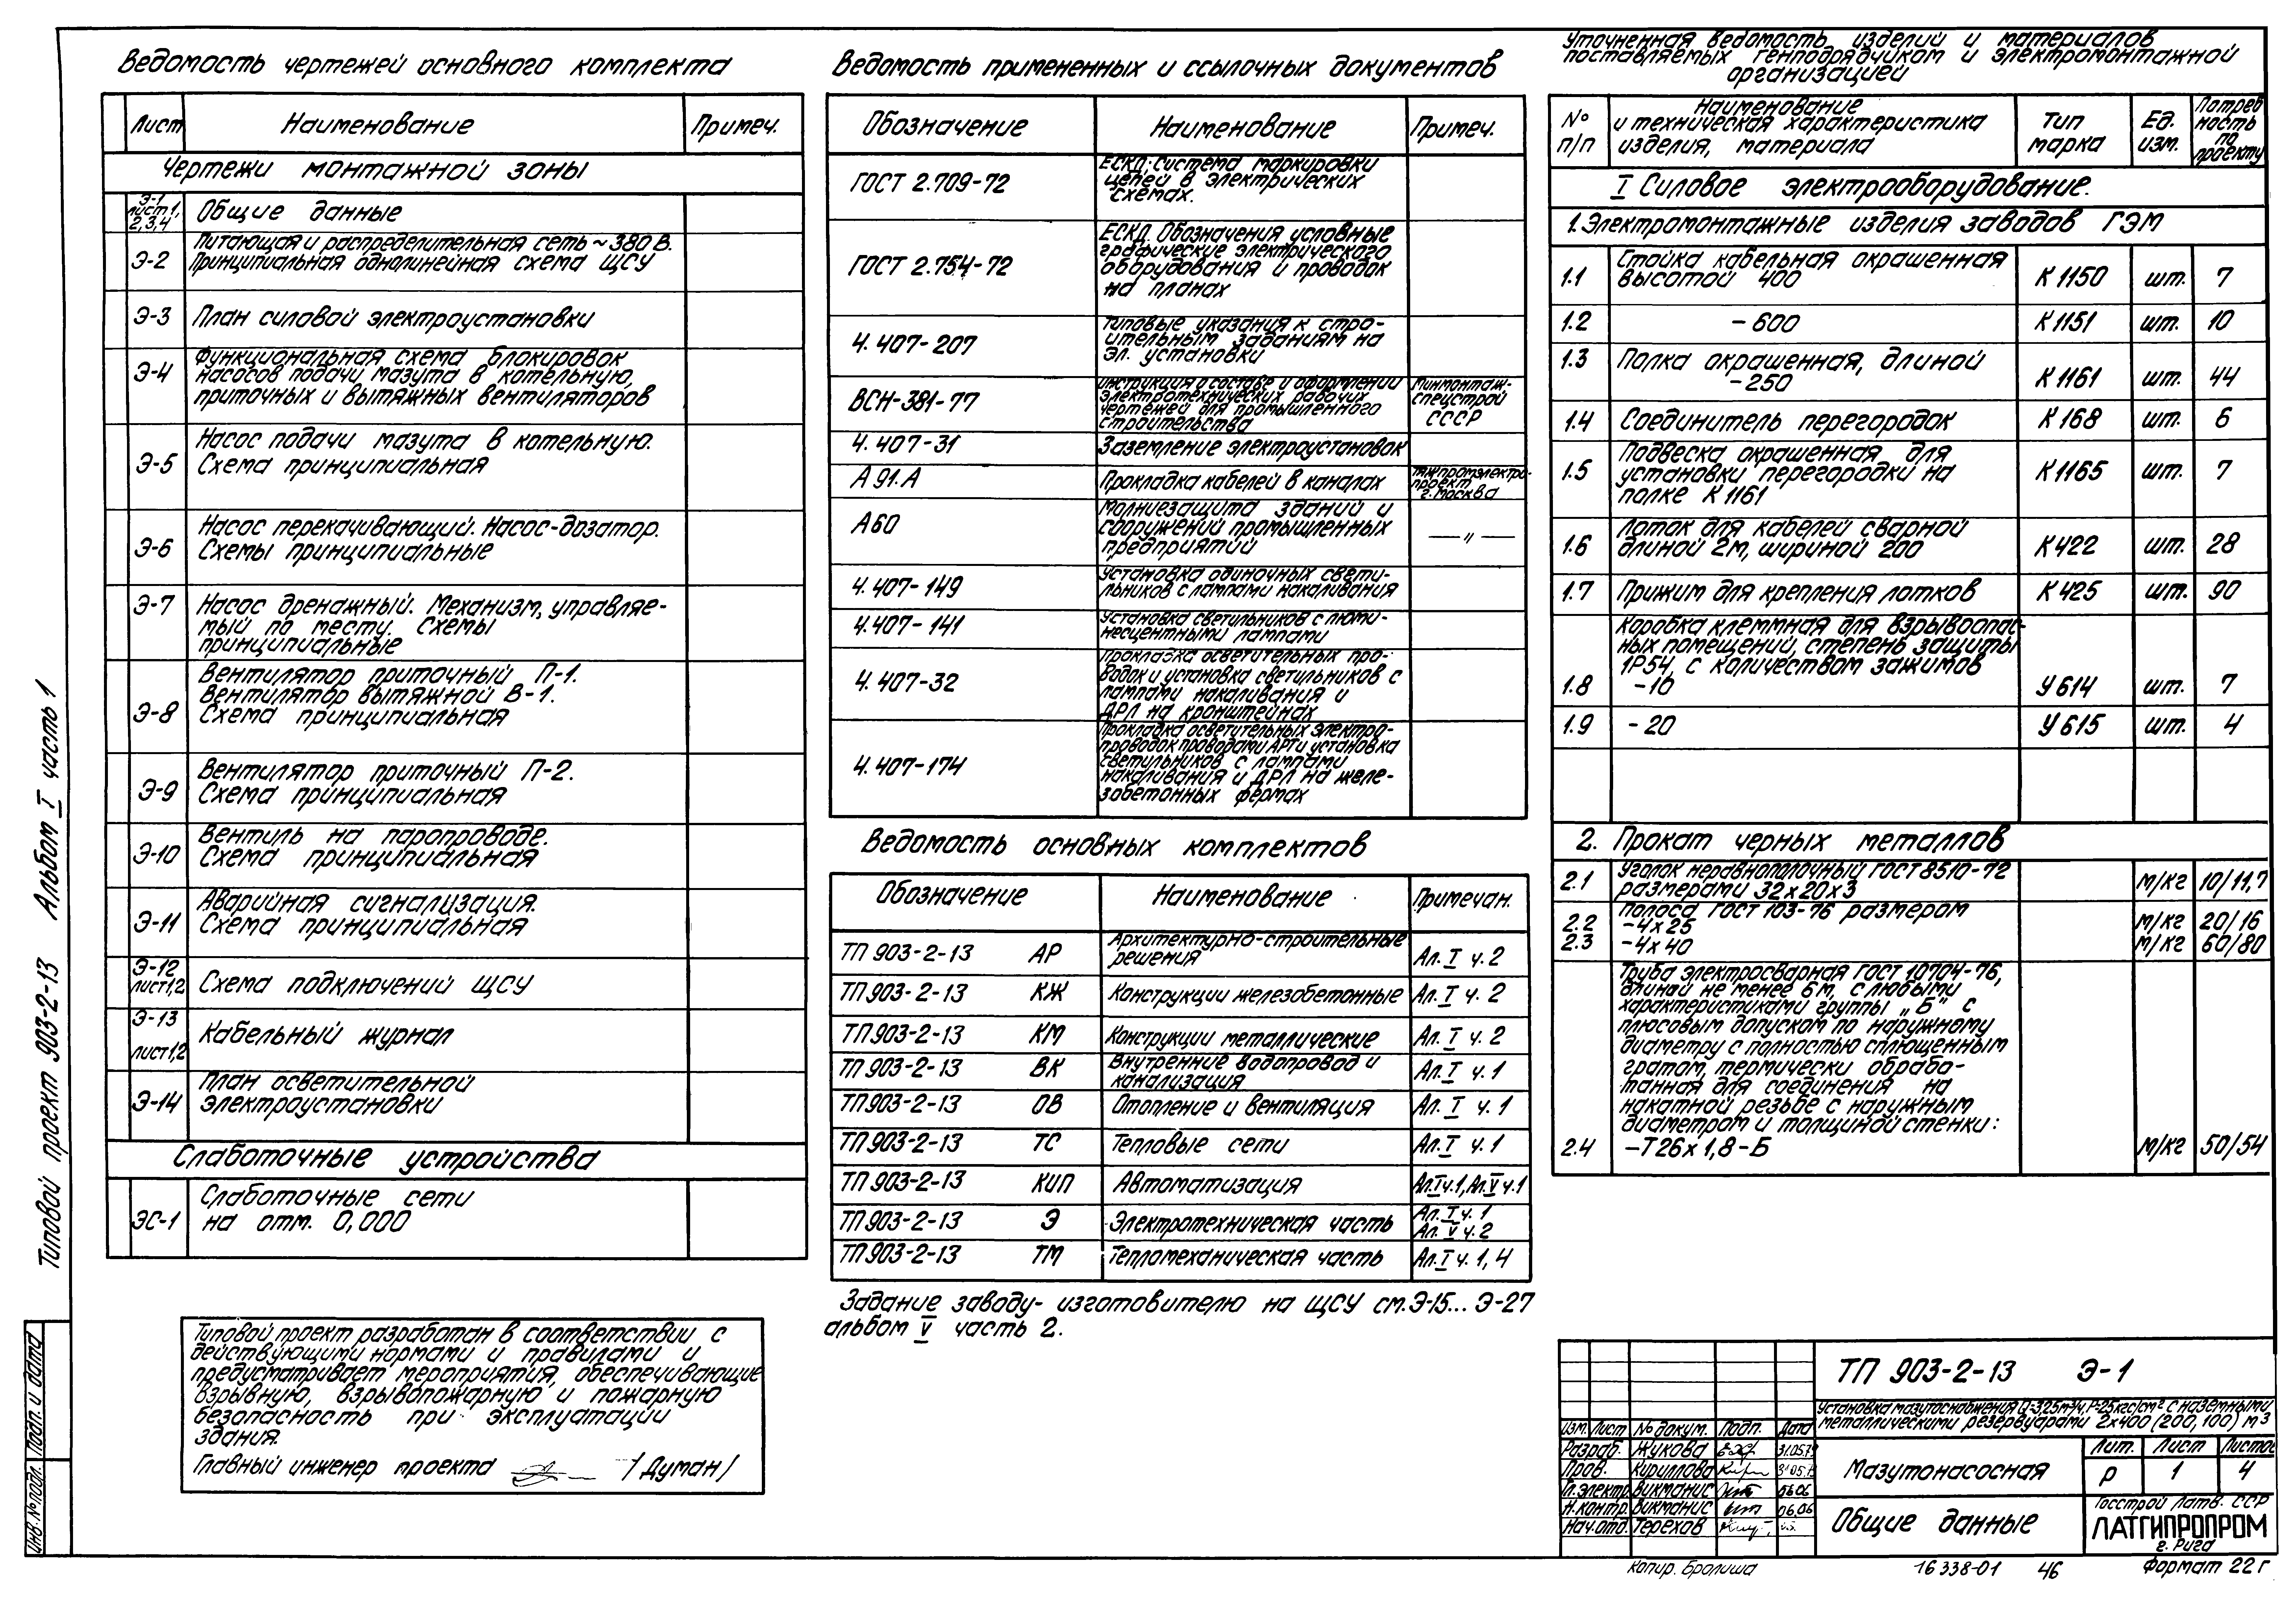 Ведомость чертежей основного комплекта
Лист Наименование Примеч.
Чертежи монтажной зоны
Э-1 лист 1, 2,3,4 Общие данные
Э-2 Питающая и распределительная сеть ~380 В.
Принципиальная однолинейная схема ЩСУ
Э-3 План силовой электроустановки
Э-4 Функциональная схема блокировок
насосов подачи мазута в котельную,
приточных и вытяжных вентиляторов
Э-5 Насос подачи мазута в котельную.
Схема принципиальная
Э-6 Насос перекачивающий. Насос-дозатор.
Схемы принципиальные
Э-7 Насос дренажный. Механизм, управляе-
мый по месту. Схемы
принципиальные
Э-8 Вентилятор приточный П-1.
Вентилятор вытяжной В-1.
Схема принципиальная
Э-9 Вентилятор приточный П-2.
Схема принципиальная
Э-10 Вентиль на паропроводе.
Схема принципиальная
Э-11 Аварийная сигнализация.
Схема принципиальная
Э-12 лист 1,2 Схема подключений ЩСУ
Э-13 лист 1,2 Кабельный журнал
Э-14 План осветительной
электроустановки
Слаботочные устройства
ЭС-1 Слаботочные сети
на отм. 0,000
Типовой проект разработан в соответствии с
действующими нормами и правилами и
предусматривает мероприятия, обеспечивающие
взрывную, взрывопожарную и пожарную
безопасность при эксплуатации
здания.
Главный инженер проекта /Думан/
Ведомость примененных и ссылочных документов
Обозначение Наименование Примеч.
ГОСТ 2.709-72 ЕСКД; Система маркировки
цепей в электрических
схемах.
ГОСТ 2.754-72 ЕСКД. Обозначения условные
графические электрического
оборудования и проводок
на планах
4.407-207 Типовые указания к стро-
ительным заданиям на
эл. установки
ВСН-381-77 Инструкция о составе и оформлении
электротехнических рабочих
чертежей для промышленного
строительства
Минмонтаж-
спецстрой
СССР
4.407-31 Заземление электроустановок
А91.А Прокладка кабелей в каналах
Тяжпромэлектро-
проект
г. Москва
А60 Молниезащита зданий и
сооружений промышленных
предприятий
— " —
4.407-149 Установка одиночных свети-
льников с лампами накаливания
4.407-141 Установка светильников с люми-
несцентными лампами
4.407-32 Прокладка осветительных про-
водок и установка светильников с
лампами накаливания и
ДРЛ на кронштейнах
4.407-174 Прокладка осветительных электро-
проводок проводами АРТ и установка
светильников с лампами
накаливания и ДРЛ на желе-
зобетонных фермах
Ведомость основных комплектов
Обозначение Наименование Примечан.
ТП 903-2-13 АР Архитектурно-строительные
решения Ал. I ч. 2
ТП 903-2-13 КЖ Конструкции железобетонные Ал. I ч. 2
ТП 903-2-13 КМ Конструкции металлические Ал. I ч. 2
ТП 903-2-13 ВК Внутренние водопровод и
канализация Ал. I ч. 1
ТП 903-2-13 ОВ Отопление и вентиляция Ал. I ч. 1
ТП 903-2-13 ТС Тепловые сети Ал. I ч. 1
ТП 903-2-13 КИП Автоматизация Ал. I ч. 1, Ал. V ч. 1
ТП 903-2-13 Э Электротехническая часть Ал. I ч. 1
Ал. V ч. 2
ТП 903-2-13 ТМ Тепломеханическая часть Ал. I ч. 1, 4
Задание заводу-изготовителю на ЩСУ см. Э-15... Э-27
альбом V часть 2.
Уточненная ведомость изделий и материалов
поставляемых генподрядчиком и электромонтажной
организацией
№ п/п Наименование
и техническая характеристика
изделия, материала
Тип марка Ед. изм. Потреб ность по проекту
I Силовое электрооборудование.
1. Электромонтажные изделия заводов ГЭМ
1.1 Стойка кабельная окрашенная
высотой 400 К 1150 шт. 7
1.2 -600 К 1151 шт. 10
1.3 Полка окрашенная, длиной
-250 К 1161 шт. 44
1.4 Соединитель перегородок К 168 шт. 6
1.5 Подвеска окрашенная для
установки перегородки на
полке К 1161 К 1165 шт. 7
1.6 Лоток для кабелей сварной
длиной 2м, шириной 200 К 422 шт. 28
1.7 Прижим для крепления лотков К 425 шт. 90
Коробка клеммная для взрывоопас-
ных помещений, степень защиты
1Р54, с количеством зажимов
1.8 -10 У 614 шт. 7
1.9 -20 У 615 шт. 4
2. Прокат черных металлов
2.1 Уголок неравнополочный ГОСТ 8510-72
размерами 32х20х3 м/кг 10/11,7
Полоса ГОСТ 103-76 размером
2.2 -4х25 м/кг 20/16
2.3 -4х40 м/кг 60/80
Труба электросварная ГОСТ 10704-76,
длиной не менее 6м, с любыми
характеристиками группы „Б" с
плюсовым допуском по наружному
диаметру с полностью сплющенным
гратом, термически обрабо-
танная для соединения на
накатной резьбе с наружным
диаметром и толщиной стенки:
2.4 -Т26х1,8-Б м/кг 50/54
ТП 903-2-13 Э-1
Установка мазутоснабжения Q=3,25м³/ч, Р=25кгс/см² с наземными
металлическими резервуарами 2х400 (200, 100) м3
Изм. Лист № докум. Подп. Дата
Разраб. Жукова 31.05.79
Пров. Кириллова 31.05.79
Гл. электр. Викманис 06.06
Н. контр. Викманис 06.06
Нач. отд. Терехов
Мазутонасосная
Лит. Лист Листов
Р 1 4
Общие данные
Госстрой Латв. ССР
ЛАТГИПРОПРОМ
г. Рига
Копир. Бролиша 16338-01 46 Формат 22г
Типовой проект 903-2-13 Альбом I часть 1
Инв. № подл. Подп. и дата